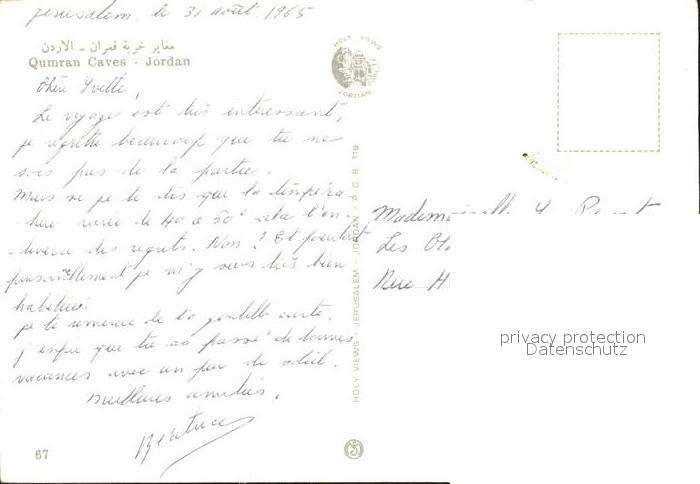 Jerusalem, le 31 août 1965
مغاير خربة قمران - الاردن
Qumran Caves - Jordan
HOLY VIEWS
JORDAN
Chère Yvette,
Le voyage est très intéressant,
je regrette beaucoup que tu ne
sois pas de la partie.
Mais si je te dis que la tempéra-
ture varie de 40 à 50° cela t'en-
lèvera des regrets. Non ? Et pourtant
personnellement je m'y sens très bien
habituée.
je te remercie de ta gentille carte.
j'espère que tu as passé de bonnes
vacances avec un peu de soleil.
Meilleures amitiés.
Mademoiselle Y.
Les
Rue H
HOLY VIEWS - JERUSALEM - JORDAN - P O B 119
privacy protection
Datenschutz
67